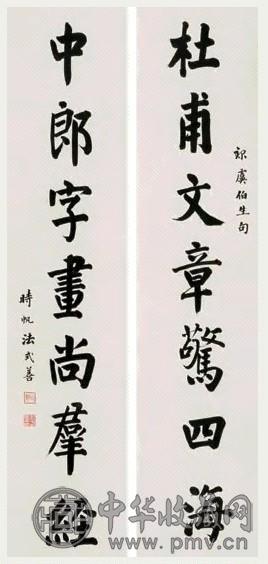 杜甫文章驚四海
虞伯生句
中郎字畫尚羣
時帆法式善
中华收藏网
www.pmv.cn